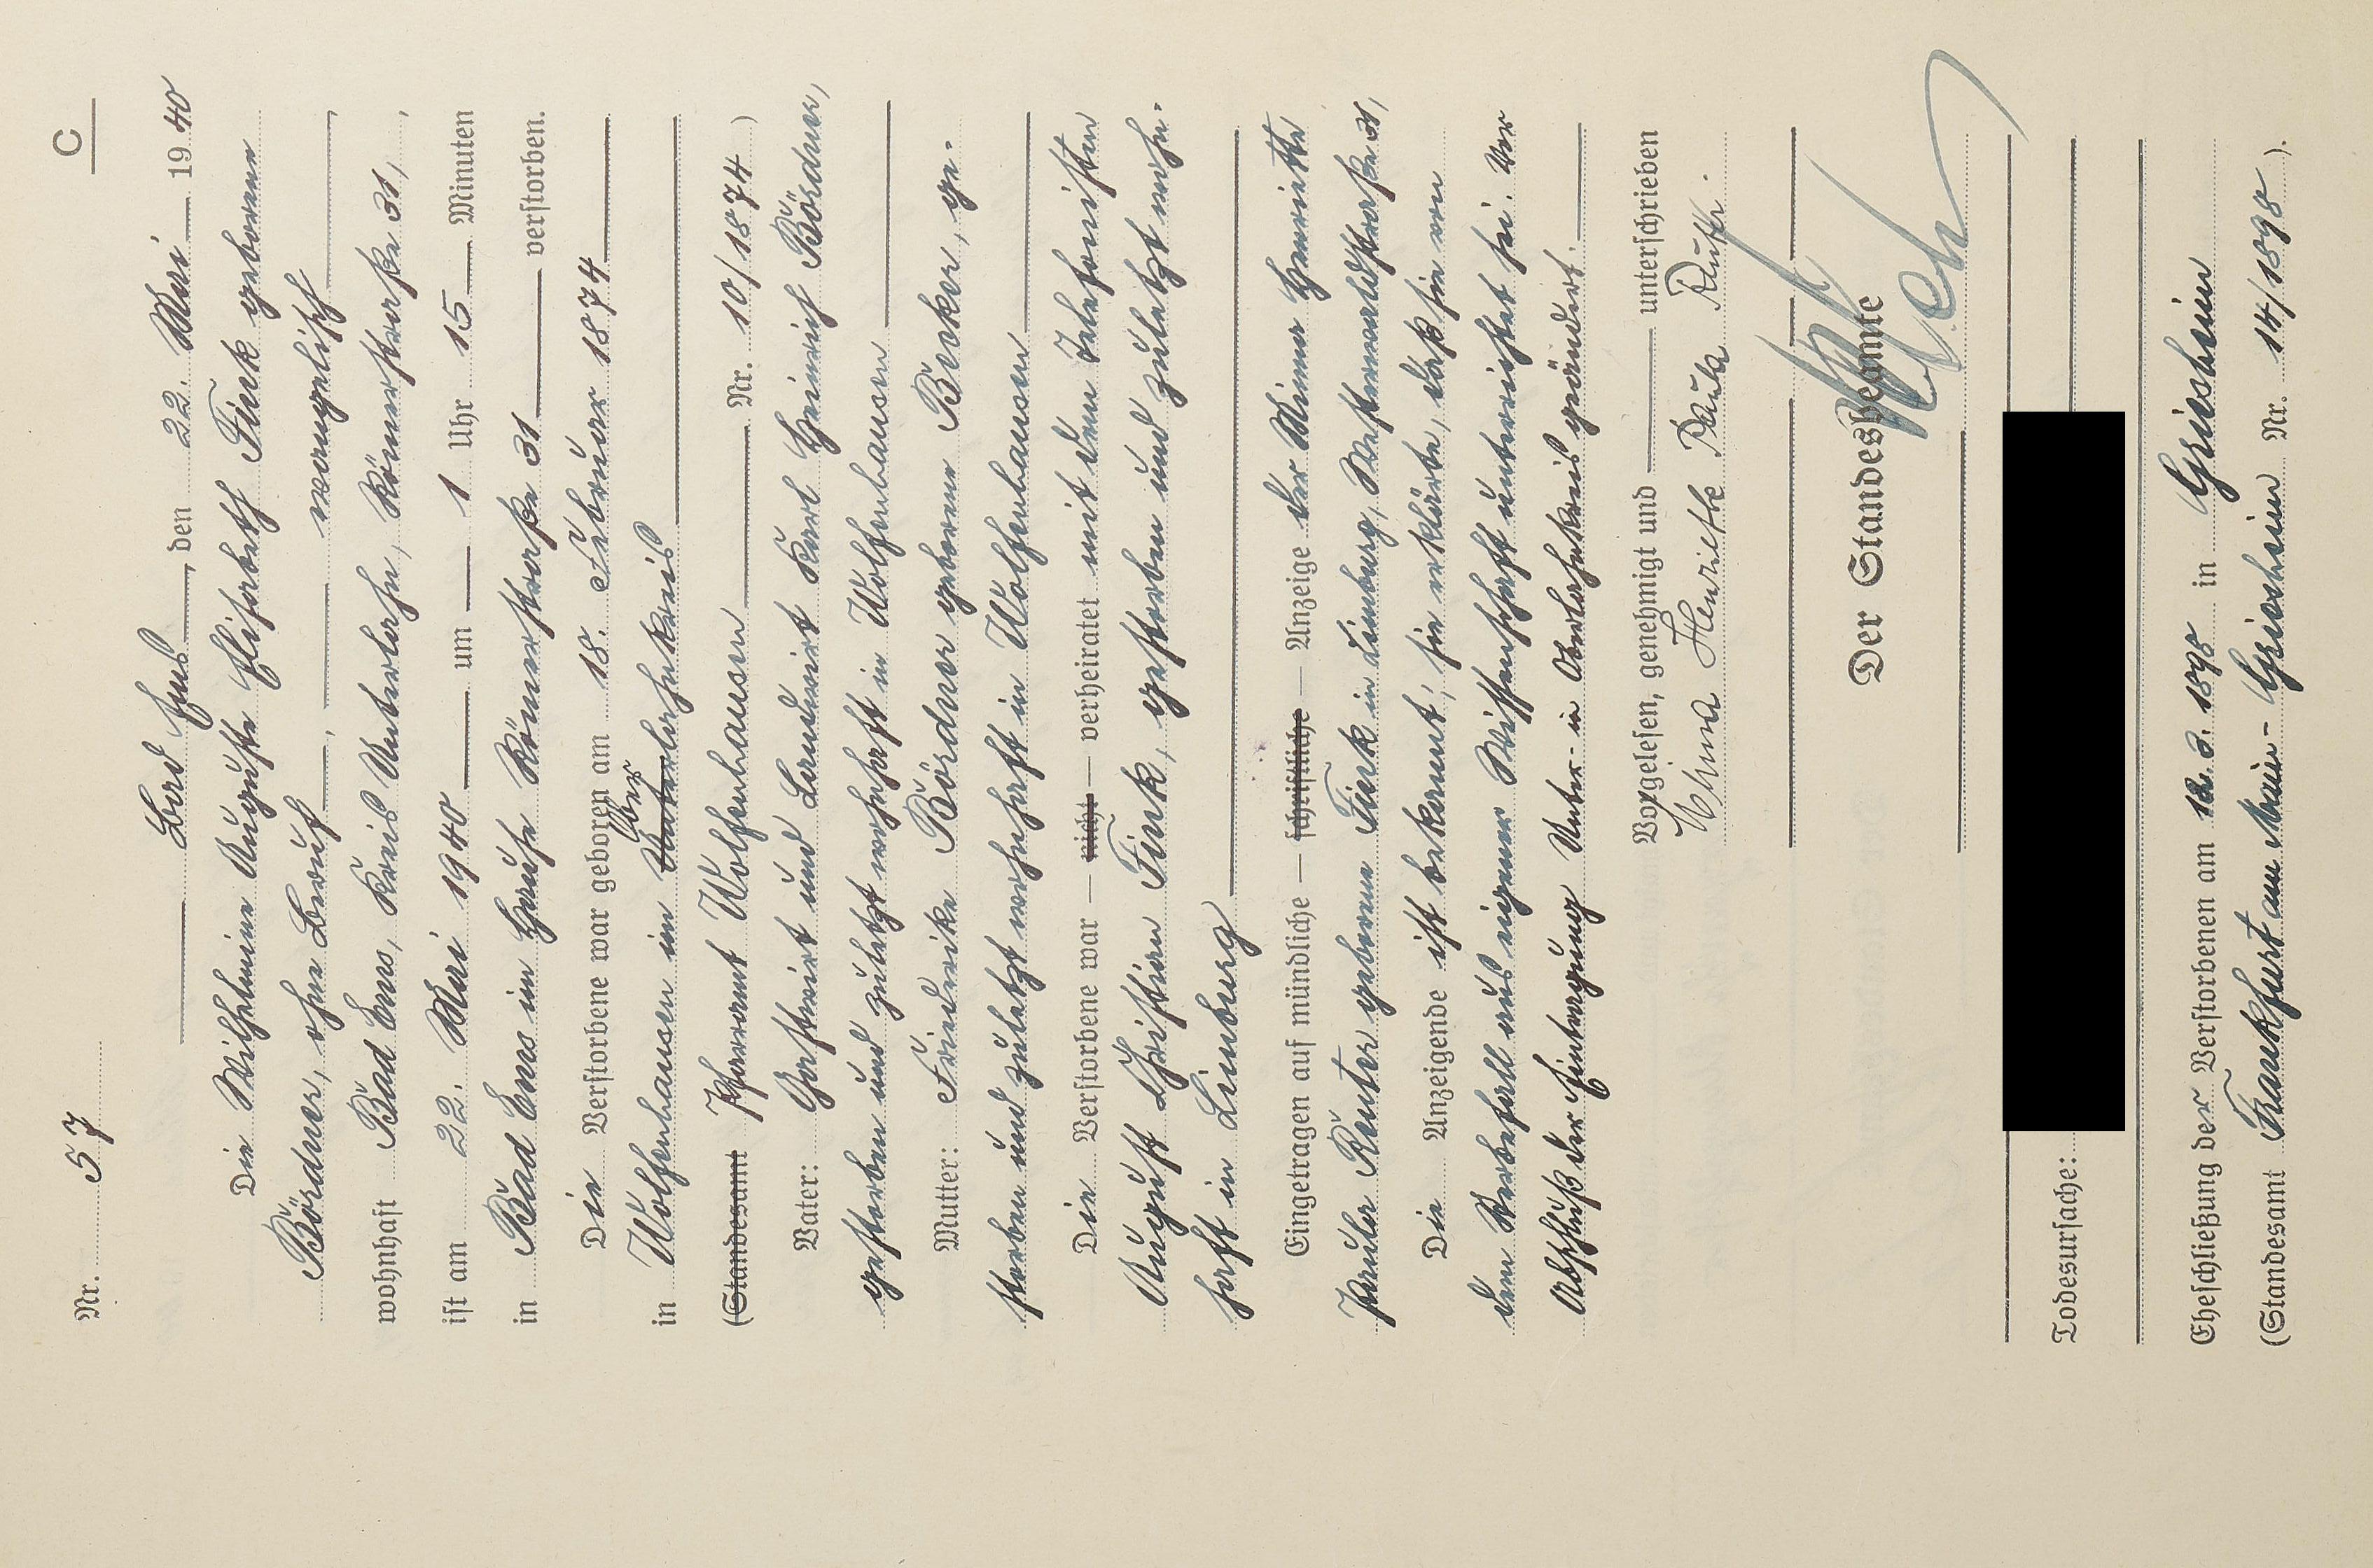 C
Nr. 57
Bad Ems, den 22. Mai 1940
Die Wilhelmine Auguste Elisabeth Fink geborene
Bördner, ohne Beruf, evangelisch
wohnhaft Bad Ems, Kreis Unterlahn, Römerstraße 31,
ist am 22. Mai 1940 um 1 Uhr 15 Minuten
in Bad Ems im Hause Römerstraße 31 verstorben.
Die Verstorbene war geboren am 18. Februar 1874
Ober
in Wolfenhausen im Unterlahnkreis
(Standesamt Pfarramt Wolfenhausen Nr. 10/1874)
Vater: Gastwirt und Landwirt Karl Heinrich Bördner,
gestorben und zuletzt wohnhaft in Wolfenhausen
Mutter: Friederike Bördner geborene Becker, ge-
storben und zuletzt wohnhaft in Wolfenhausen
Die Verstorbene war — nicht — verheiratet mit dem Telefonisten
August Christian Fink, gestorben und zuletzt wohn-
haft in Limburg
Eingetragen auf mündliche — schriftliche — Anzeige der Minna Henriette
Paula geborene Fink in Limburg, Westerwaldstraße 31,
Die Anzeigende ist bekannt; sie erklärte, daß sie von
dem Sterbefall aus eigener Wissenschaft unterrichtet sei. Vor
Abschluß der Eintragung Unter- in Oberlahnkreis geändert.
Vorgelesen, genehmigt und unterschrieben
Minna Henriette Paula
Der Standesbeamte
Todesursache:
Eheschließung der Verstorbenen am 12. 3. 1898 in Griesheim
(Standesamt Frankfurt am Main-Griesheim Nr. 14/1898).